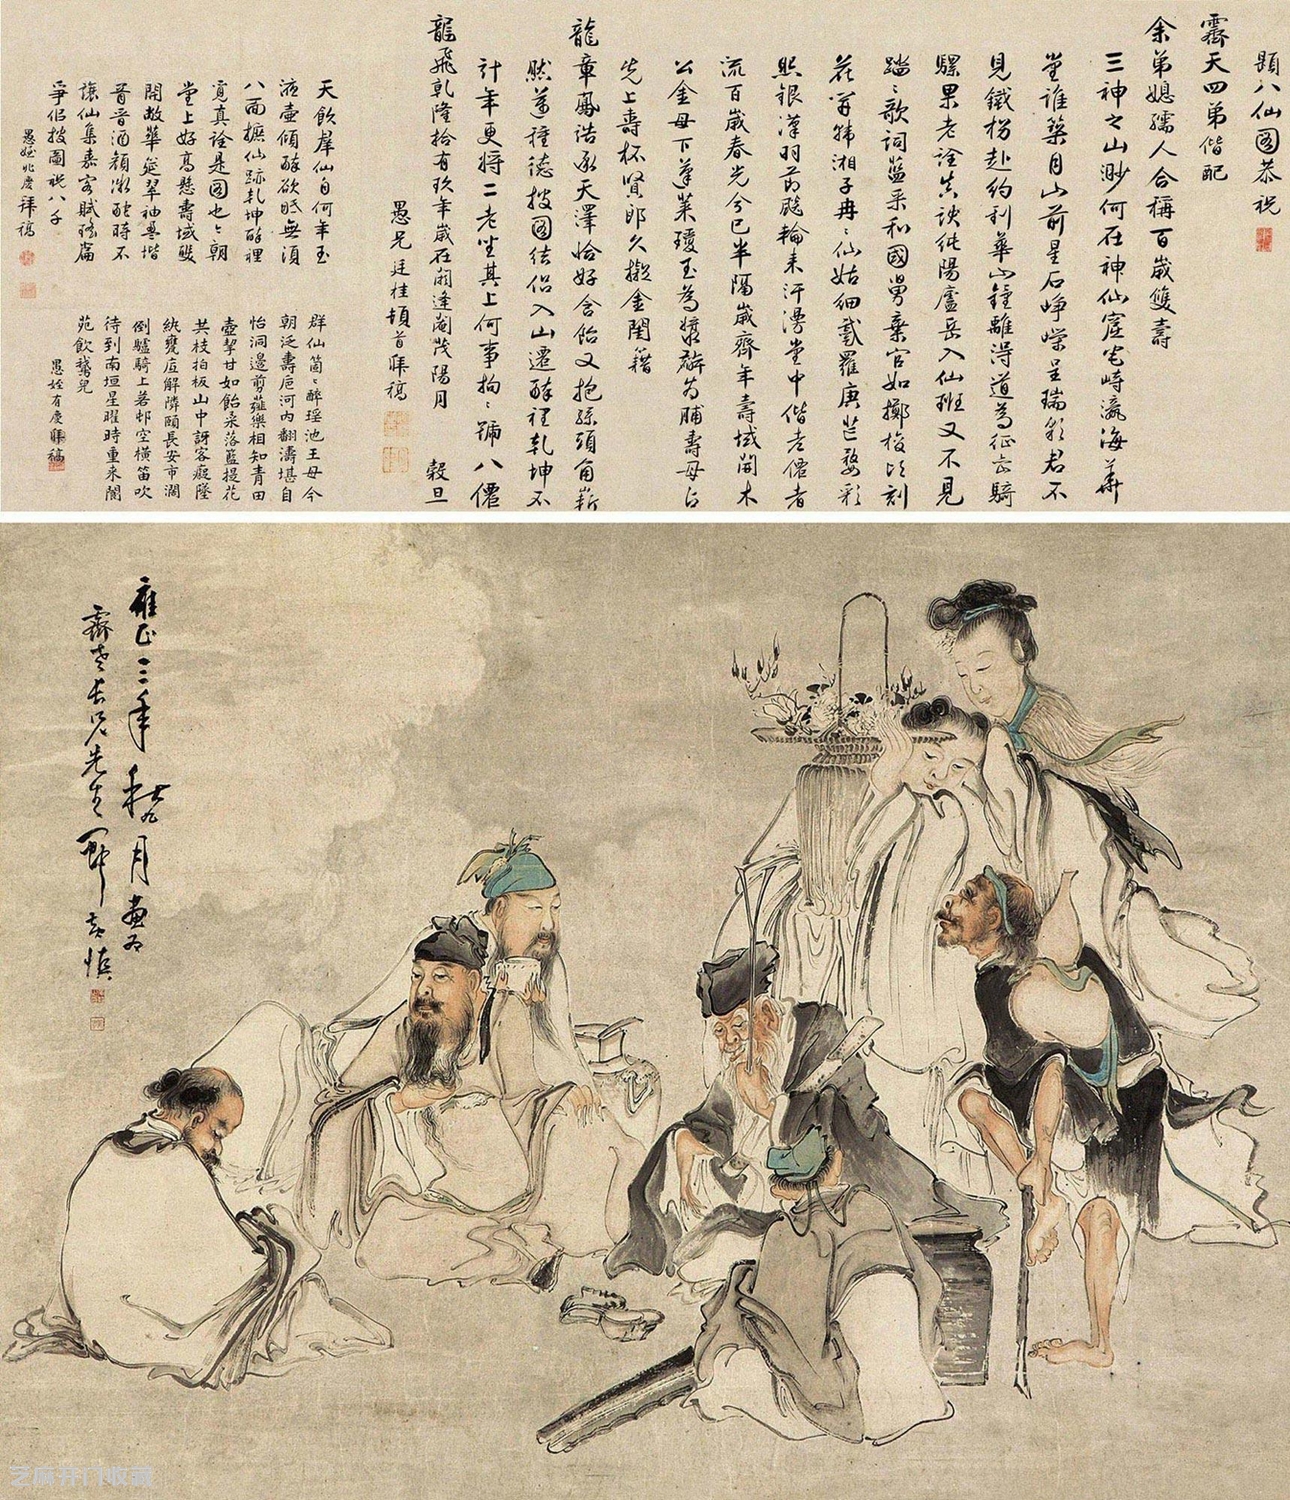 題八仙圖恭祝
霽天四弟偕配
余弟媳孺人合稱百歲雙壽
三神之山渺何在神仙窟宅崎瀛海華
堂誰築月山前星石崢嶸呈瑞彩君不
見鐵拐赴約利華山鍾離得道為征
騎
騾果老詮真訣純陽廬岳入仙班又不見
踏踏歌詞藍采和國舅棄官如擲梭頃刻
花開韓湘子冉冉仙姑細
彩
銀漢羽蓋飈輪來汗漫堂中偕老僊者
流百歲春光今已半隔歲齊年壽域開木
公金母下蓬萊瓊玉為漿麟為脯壽母
先上壽杯賢郎久擬金閨籍
龍章鳳誥承天澤恰好含飴又抱孫頭角嶄
然蓮種德披圖結侶入山選醉裡乾坤不
計年更將二老坐其上何事拘拘號八僊
龍飛乾隆拾有玖年歲在閼逢閹茂陽月
穀旦
愚兄廷桂頓首拜稿
天飲羣仙自何年玉
液壺傾醉欲眠無須
八面摭仙跡乾坤醉裡
覓真詮是圖也也朝
堂上好高懸壽域
開敞華筵翠袖
酒顏微酡時不
讓仙集嘉賓賦
篇
爭侶披圖祝八千
愚姪兆慶拜稿
群仙箇箇醉瑤池王母今
朝泛壽卮河內翻濤堪自
怡洞邊剪薤樂相知青田
壺挈甘如飴采落籃提花
共枝拍板山中訝客癡墜
統甕
解隣頤長安市濶
倒驢騎上著邨空橫笛吹
待到南垣星曜時重來閬
苑飲
兒
愚姪有慶拜稿
雍正三年秋九月畫為
霽老長兄先生
慎
芝麻开门收藏